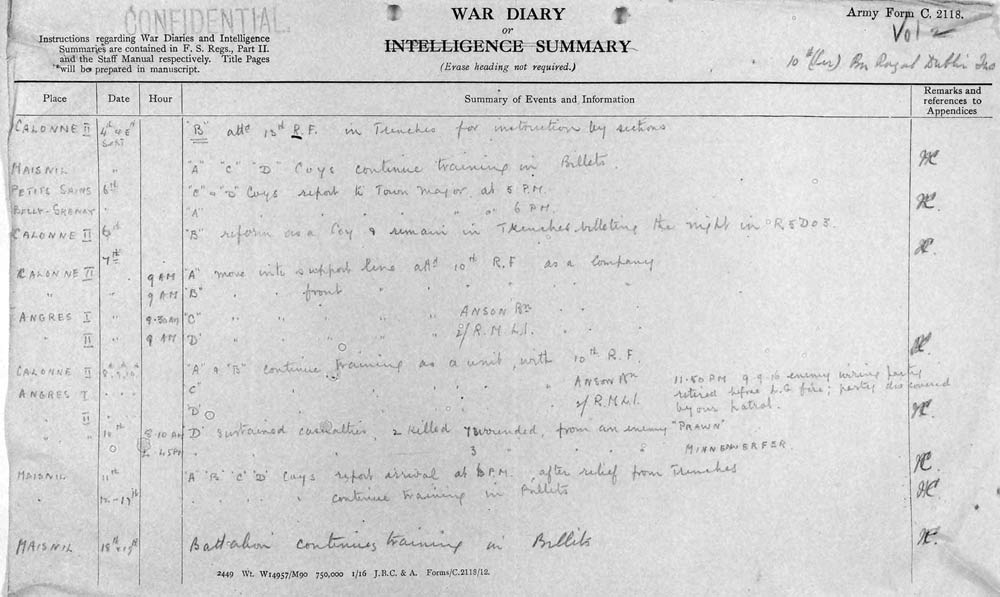 CONFIDENTIAL
WAR DIARY
or
INTELLIGENCE SUMMARY
(Erase heading not required.)
Army Form C. 2118.
Vol 2
10th (Ser) Bn Royal Dublin Fus
Instructions regarding War Diaries and Intelligence
Summaries are contained in F. S. Regs., Part II.
and the Staff Manual respectively. Title Pages
will be prepared in manuscript.
Place Date Hour Summary of Events and Information Remarks and references to Appendices
CALONNE II 4th Sept "B" attd 13th R.F. in Trenches for instruction by sections
MAISNIL " "A" "C" "D" Coys continue training in Billets.
PETITS SAINS 6th "C" & "D" Coys report to Town Major at 5 P.M.
BULLY-GRENAY "A" " " " " " 6 P.M.
CALONNE II 6th "B" reform as a Coy & remain in Trenches billeting the night in
7th
CALONNE II 9 AM "A" move into support line attd 10th R.F. as a company
" 9 AM "B" " " front " " " "
ANGRES I 9.30 AM "C" " " " " ANSON Bn " "
" II 9 AM "D" " " " " 2/R.M.L.I. " "
CALONNE II "A" & "B" continue training as a unit, with 10th R.F.
ANGRES I "C" " " " " ANSON Bn 11.50 PM 9.9.16 enemy wiring party
" II "D" " " " " 2/R.M.L.I. retired before L.G. fire; party discovered
by our patrol.
" " 10th 8.10 AM "D" sustained casualties, 2 killed 7 wounded, from an enemy "PRAWN"
.45 PM " " 3 " " " MINNENWERFER.
MAISNIL 11th "A" "B" "C" "D" Coys report arrival at P.M. after relief from Trenches
" " " " continue training in Billets
MAISNIL 18th Battalion continues training in Billets
2449 Wt. W14957/M90 750,000 1/16 J.B.C. & A. Forms/C.2118/12.